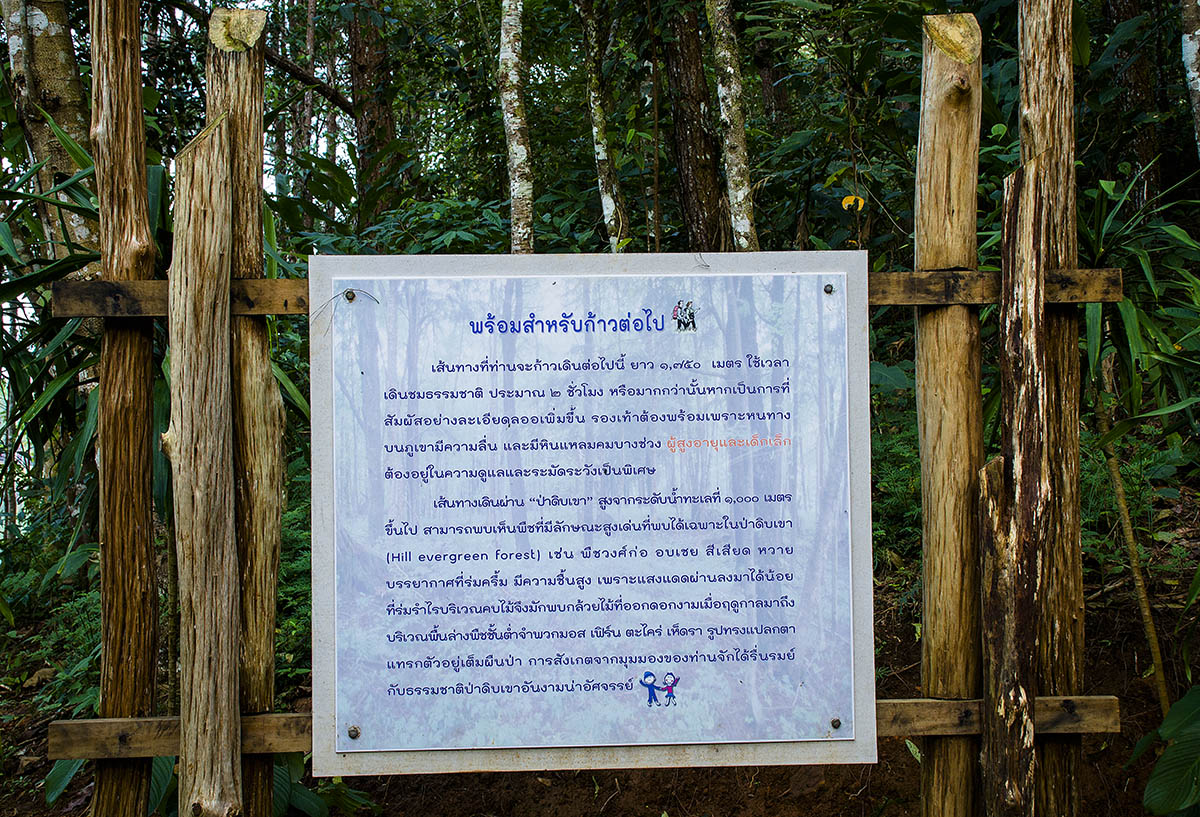 พร้อมสำหรับก้าวต่อไป
เส้นทางที่ท่านจะก้าวเดินต่อไปนี้ ยาว ๑,๗๕๐ เมตร ใช้เวลา
เดินชมธรรมชาติ ประมาณ ๒ ชั่วโมง หรือมากกว่านั้นหากเป็นการที่
สัมผัสอย่างละเอียดุลออเพิ่มขึ้น รองเท้าต้องพร้อมเพราะหนทาง
บนภูเขามีความลื่น และมีหินแหลมคมบางช่วง ผู้สูงอายุและเด็กเล็ก
ต้องอยู่ในความดูแลและระมัดระวังเป็นพิเศษ
เส้นทางเดินผ่าน “ป่าดิบเขา” สูงจากระดับน้ำทะเลที่ ๑,๐๐๐ เมตร
ขึ้นไป สามารถพบเห็นพืชที่มีลักษณะสูงเด่นที่พบได้เฉพาะในป่าดิบเขา
(Hill evergreen forest) เช่น พืชวงศ์ก่อ อบเชย สีเสียด หวาย
บรรยากาศที่ร่มครึ้ม มีความชื้นสูง เพราะแสงแดดผ่านลงมาได้น้อย
ที่ร่มรำไรบริเวณคบไม้จึงมักพบกล้วยไม้ที่ออกดอกงามเมื่อฤดูกาลมาถึง
บริเวณพื้นล่างพืชชั้นต่ำจำพวกมอส เฟิร์น ตะไคร่ เห็ดรา รูปทรงแปลกตา
แทรกตัวอยู่เต็มผืนป่า การสังเกตจากมุมมองของท่านจักได้รื่นรมย์
กับธรรมชาติป่าดิบเขาอันงามน่าอัศจรรย์